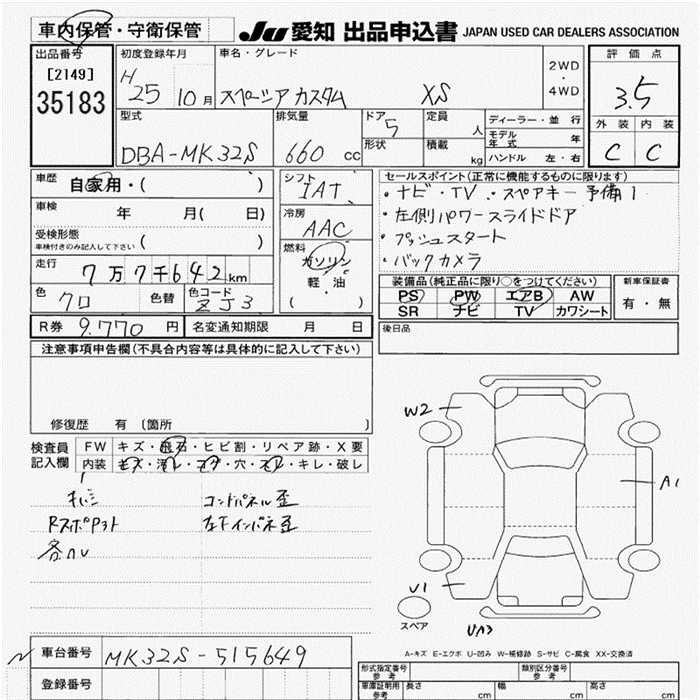 車内保管・守衛保管
Ju 愛知 出品申込書 JAPAN USED CAR DEALERS ASSOCIATION
出品番号
[2149]
35183
初度登録年月
H 25 10月
車名・グレード
スペーシア カスタム XS
2WD
・
4WD
評価点
3.5
外装 内装
C C
型式
DBA-MK32S
排気量
660 cc
ドア 5
形状
定員 人
積載 kg
ディーラー・並行
モデル年式 年
ハンドル 左・右
車歴
自家用・( )
車検 年 月( 日)
受検形態
車検付きのみ記入して下さい ( )
走行
7万7千642km
色 クロ 色替
色コード ZJ3
シフト
IAT
冷房
AAC
燃料
ガソリン
軽油
( )
セールスポイント(正常に機能するものに限ります)
・ナビ・TV ・スペアキー予備1
・左側パワースライドドア
・プッシュスタート
・バックカメラ
装備品(純正品に限り○をつけてください)
PS PW エアB AW
SR ナビ TV カワシート
新車保証書
有・無
R券 9.770円 名変通知期限 月 日
後日品
注意事項申告欄(不具合内容等は具体的に記入して下さい)
修復歴 有 〔箇所 〕
検査員記入欄
FW キズ・飛石・ヒビ割・リペア跡・X要
内装 キズ・汚レ・コゲ・穴・スレ・キレ・破レ
コンパネル歪
左下インパネ歪
W2
A1
U1
UA3
スペア
A-キズ E-エクボ U-凹み W-補修跡 S-サビ C-腐食 XX-交換済
車台番号 MK32S-515649
登録番号
型式指定番号 参考
類別区分番号 参考
車庫証明用 参考 長さ cm 幅 cm 高さ cm